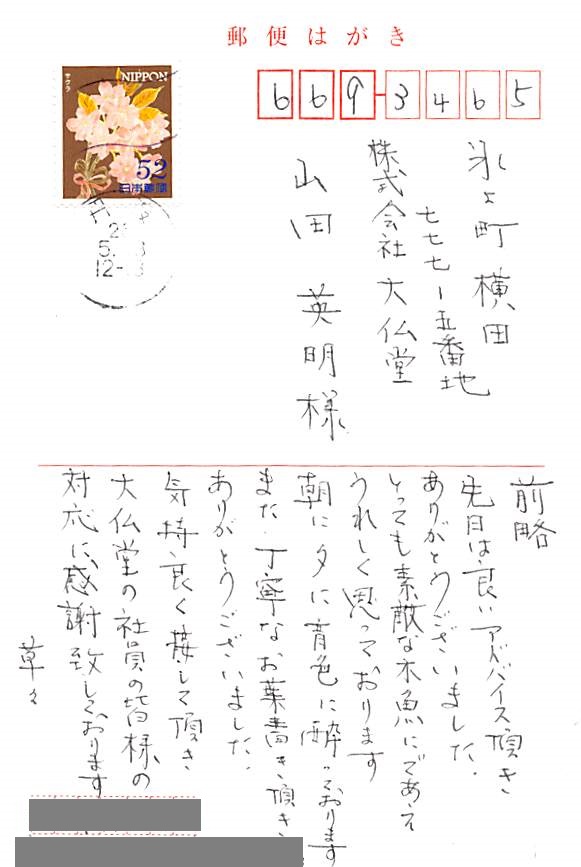 郵便はがき
サクラ
NIPPON
52
日本郵便
12-18
669-3465
氷上町横田
七七七ー五番地
株式会社 大仏堂
山田 英明様
前略
先日は良いアドバイス頂き
ありがとうございました。
とっても素敵な木魚にであえ
うれしく思っております
朝に夕に音色に酔っております
また、丁寧なお葉書き頂き、
ありがとうございました。
気持良く接して頂き
大仏堂の社員の皆様の
対応に、感謝致しております。
草々